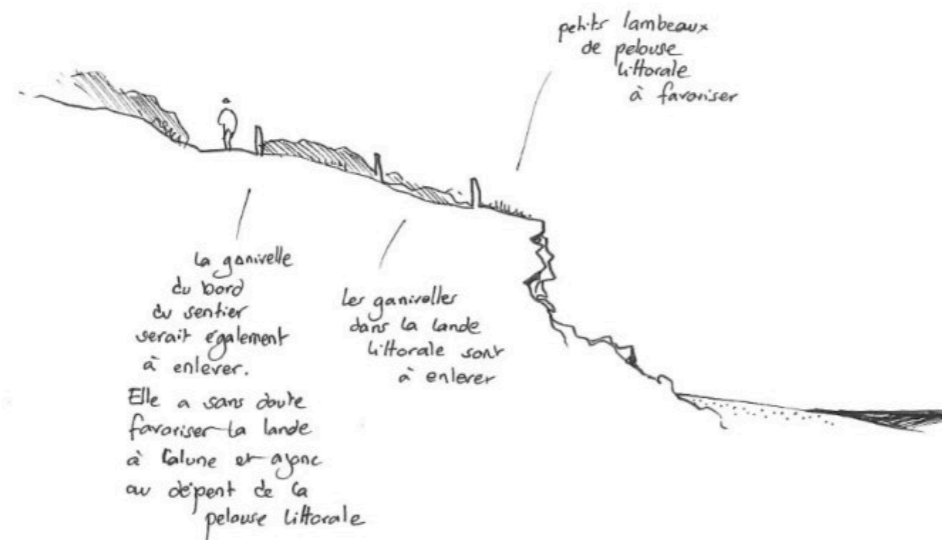 petits lambeaux
de pelouse
littorale
à favoriser
la ganivelle
du bord
du sentier
serait également
à enlever.
Elle a sans doute
favoriser la lande
à Calune et ajonc
au dépent de la
pelouse littorale
Les ganivelles
dans la lande
littorale sont
à enlever